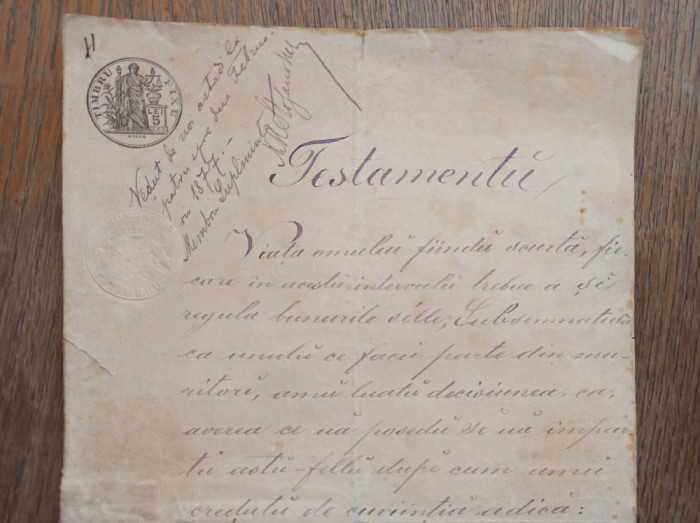 11
TIMBRU FIXU
LEI
5
Vedut de noi astadi la
patru spre dece Februa-
1877.-
Membru Supliminte
Testamentŭ
Viața omuluĭ fiindŭ scurtă, fie-
care in acestŭ intervalŭ trebue a șĭ
regula bunurile sélle, Subsemnatulŭ
ca unulŭ ce facŭ parte din mu-
ritorĭ, amŭ luatŭ decisiunea, ca,
averea ce uă posedŭ se uă impar-
tu astŭ-fellŭ dupĕ cum amŭ
credutŭ de cuviintiă adică: